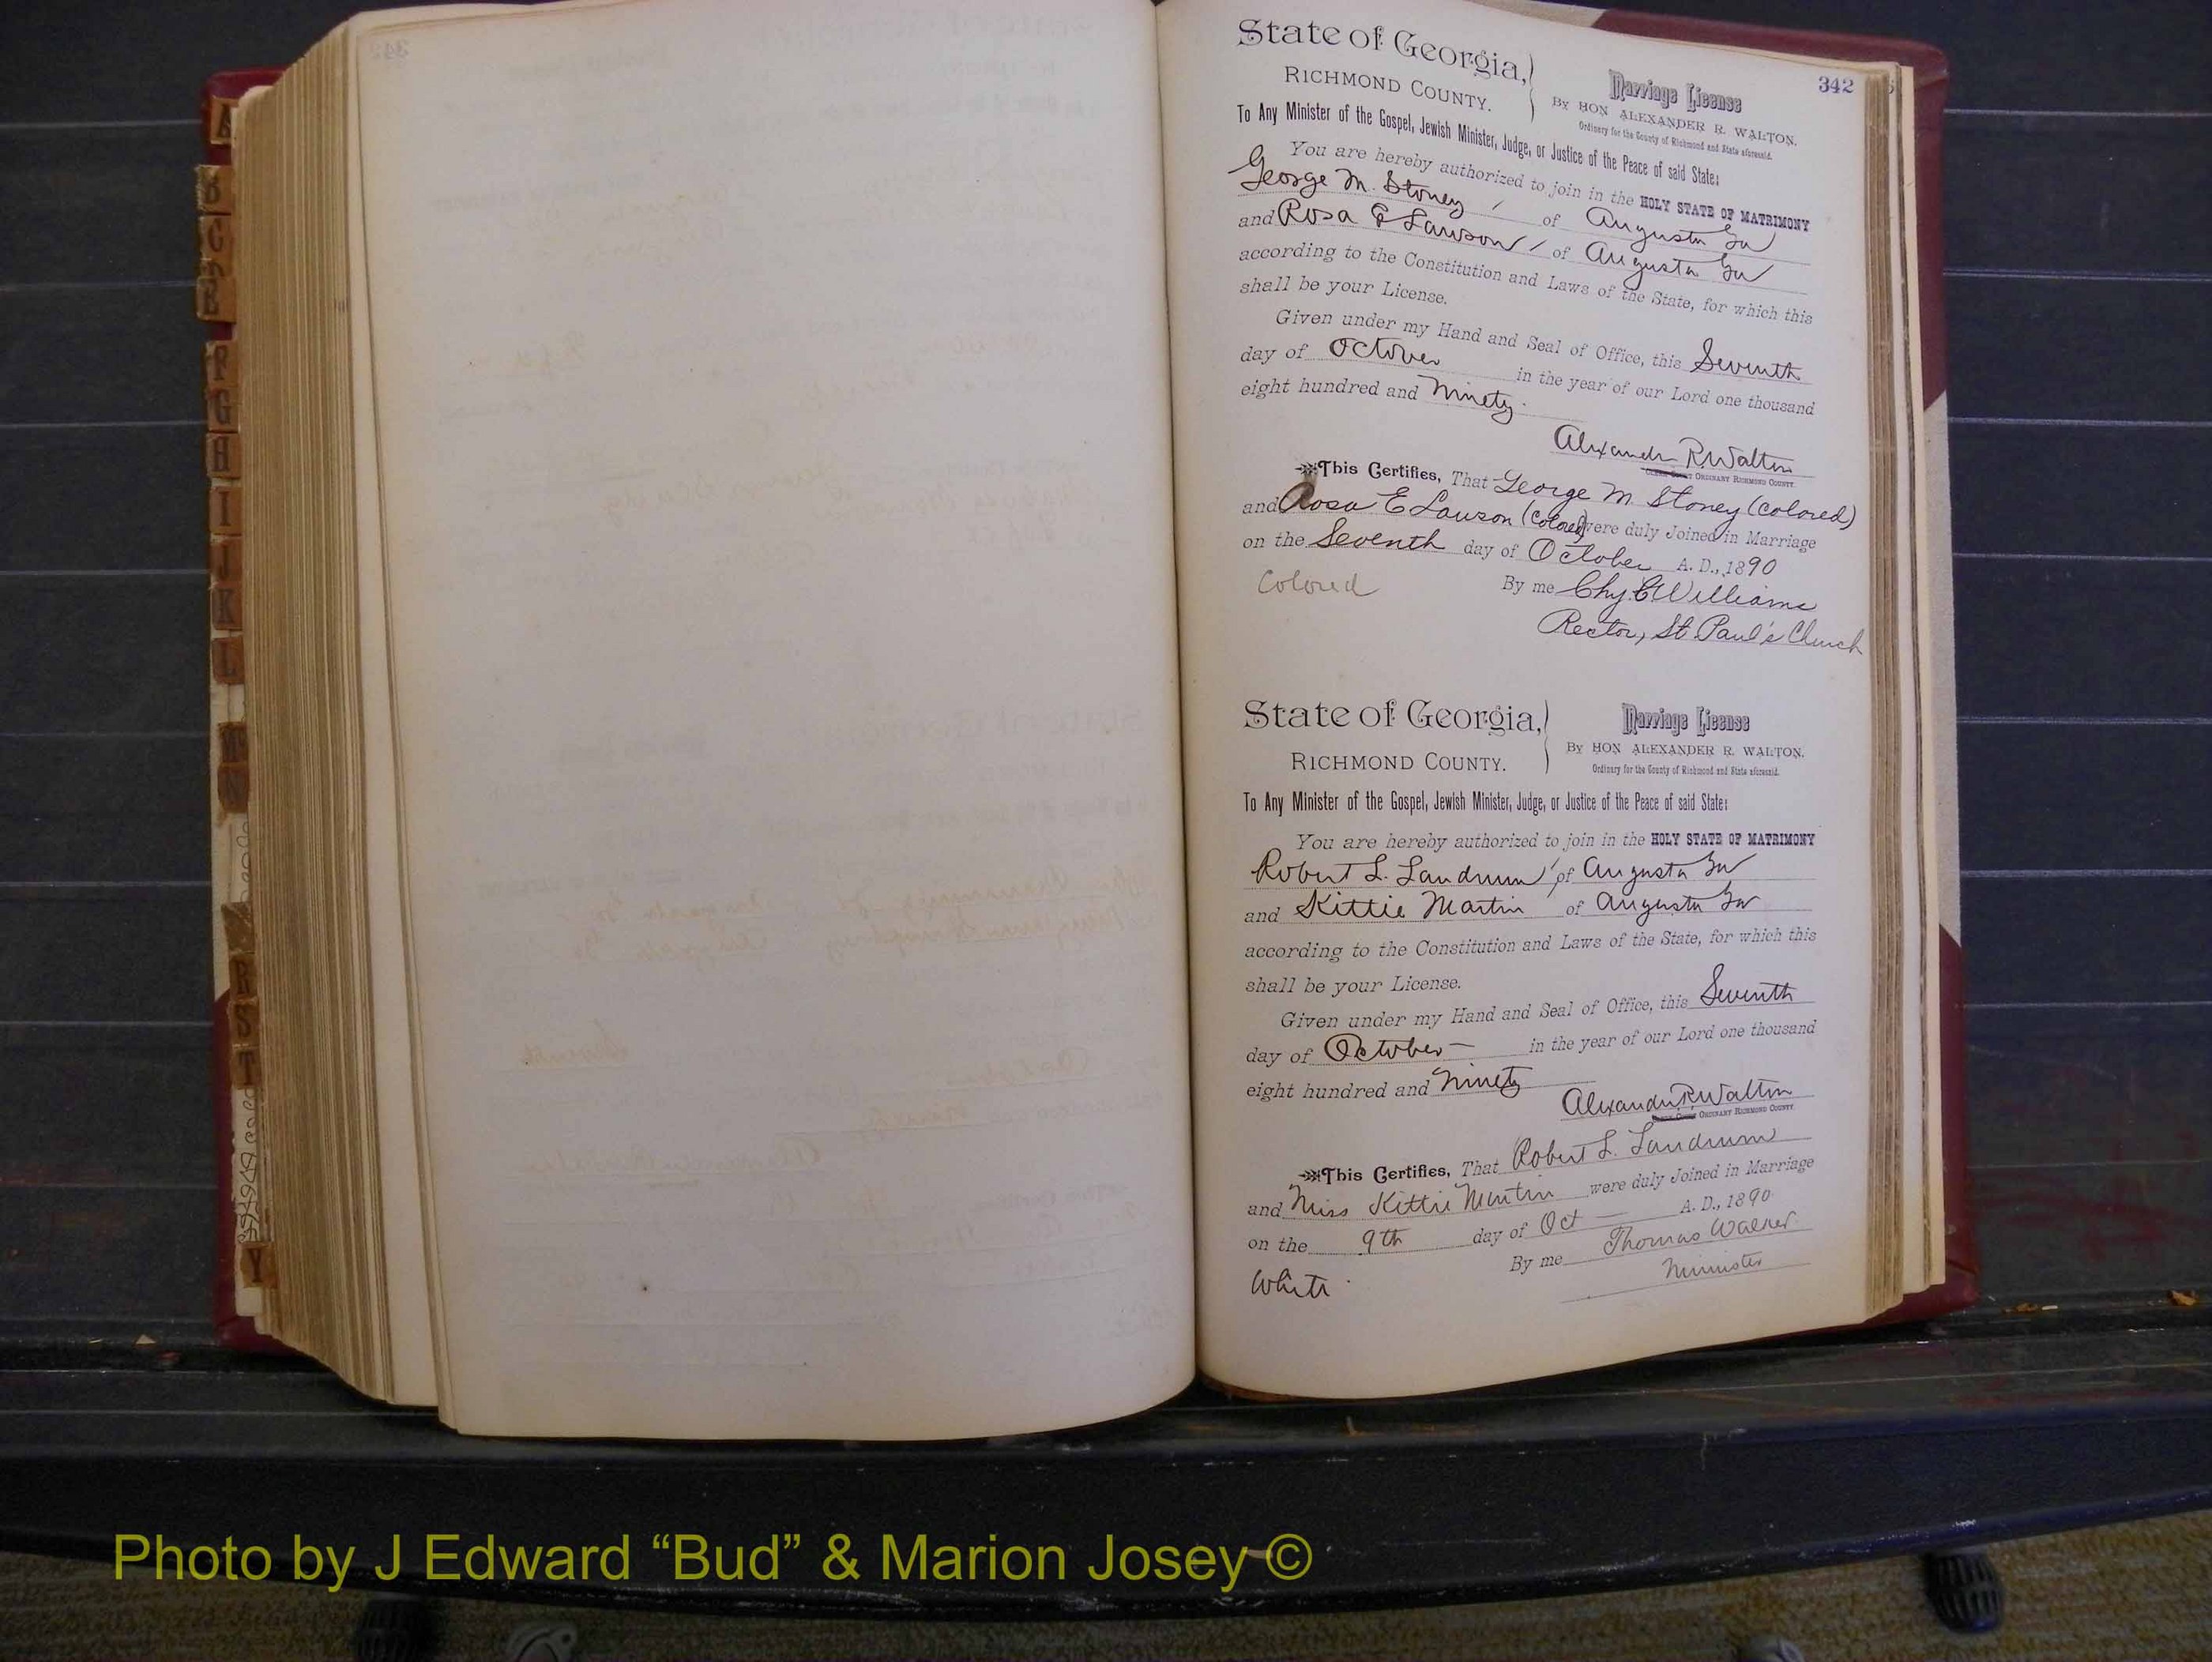 342
State of Georgia,
RICHMOND COUNTY.
Marriage License
By HON ALEXANDER R. WALTON.
Ordinary for the County of Richmond and State aforesaid.
To Any Minister of the Gospel, Jewish Minister, Judge, or Justice of the Peace of said State:
You are hereby authorized to join in the HOLY STATE OF MATRIMONY
George M. Stoney of Augusta Ga
and Rosa E Lawson of Augusta Ga
according to the Constitution and Laws of the State, for which this
shall be your License.
Given under my Hand and Seal of Office, this Seventh
day of October in the year of our Lord one thousand
eight hundred and Ninety.
Alexander R Walton
ORDINARY RICHMOND COUNTY.
This Certifies, That George M. Stoney (Colored)
and Rosa E Lawson (Colored) were duly Joined in Marriage
on the Seventh day of October A. D., 1890
Colored By me Chs. C Williams
Rector, St. Paul's Church
State of Georgia,
RICHMOND COUNTY.
Marriage License
By HON ALEXANDER R. WALTON.
Ordinary for the County of Richmond and State aforesaid.
To Any Minister of the Gospel, Jewish Minister, Judge, or Justice of the Peace of said State:
You are hereby authorized to join in the HOLY STATE OF MATRIMONY
Robert L. Landrum of Augusta Ga
and Kittie Martin of Augusta Ga
according to the Constitution and Laws of the State, for which this
shall be your License.
Given under my Hand and Seal of Office, this Seventh
day of October in the year of our Lord one thousand
eight hundred and Ninety
Alexander R Walton
ORDINARY RICHMOND COUNTY.
This Certifies, That Robert L. Landrum
and Miss Kittie Martin were duly Joined in Marriage
on the 9th day of Oct A. D., 1890
By me Thomas Walker
White Minister
Photo by J Edward “Bud” & Marion Josey ©